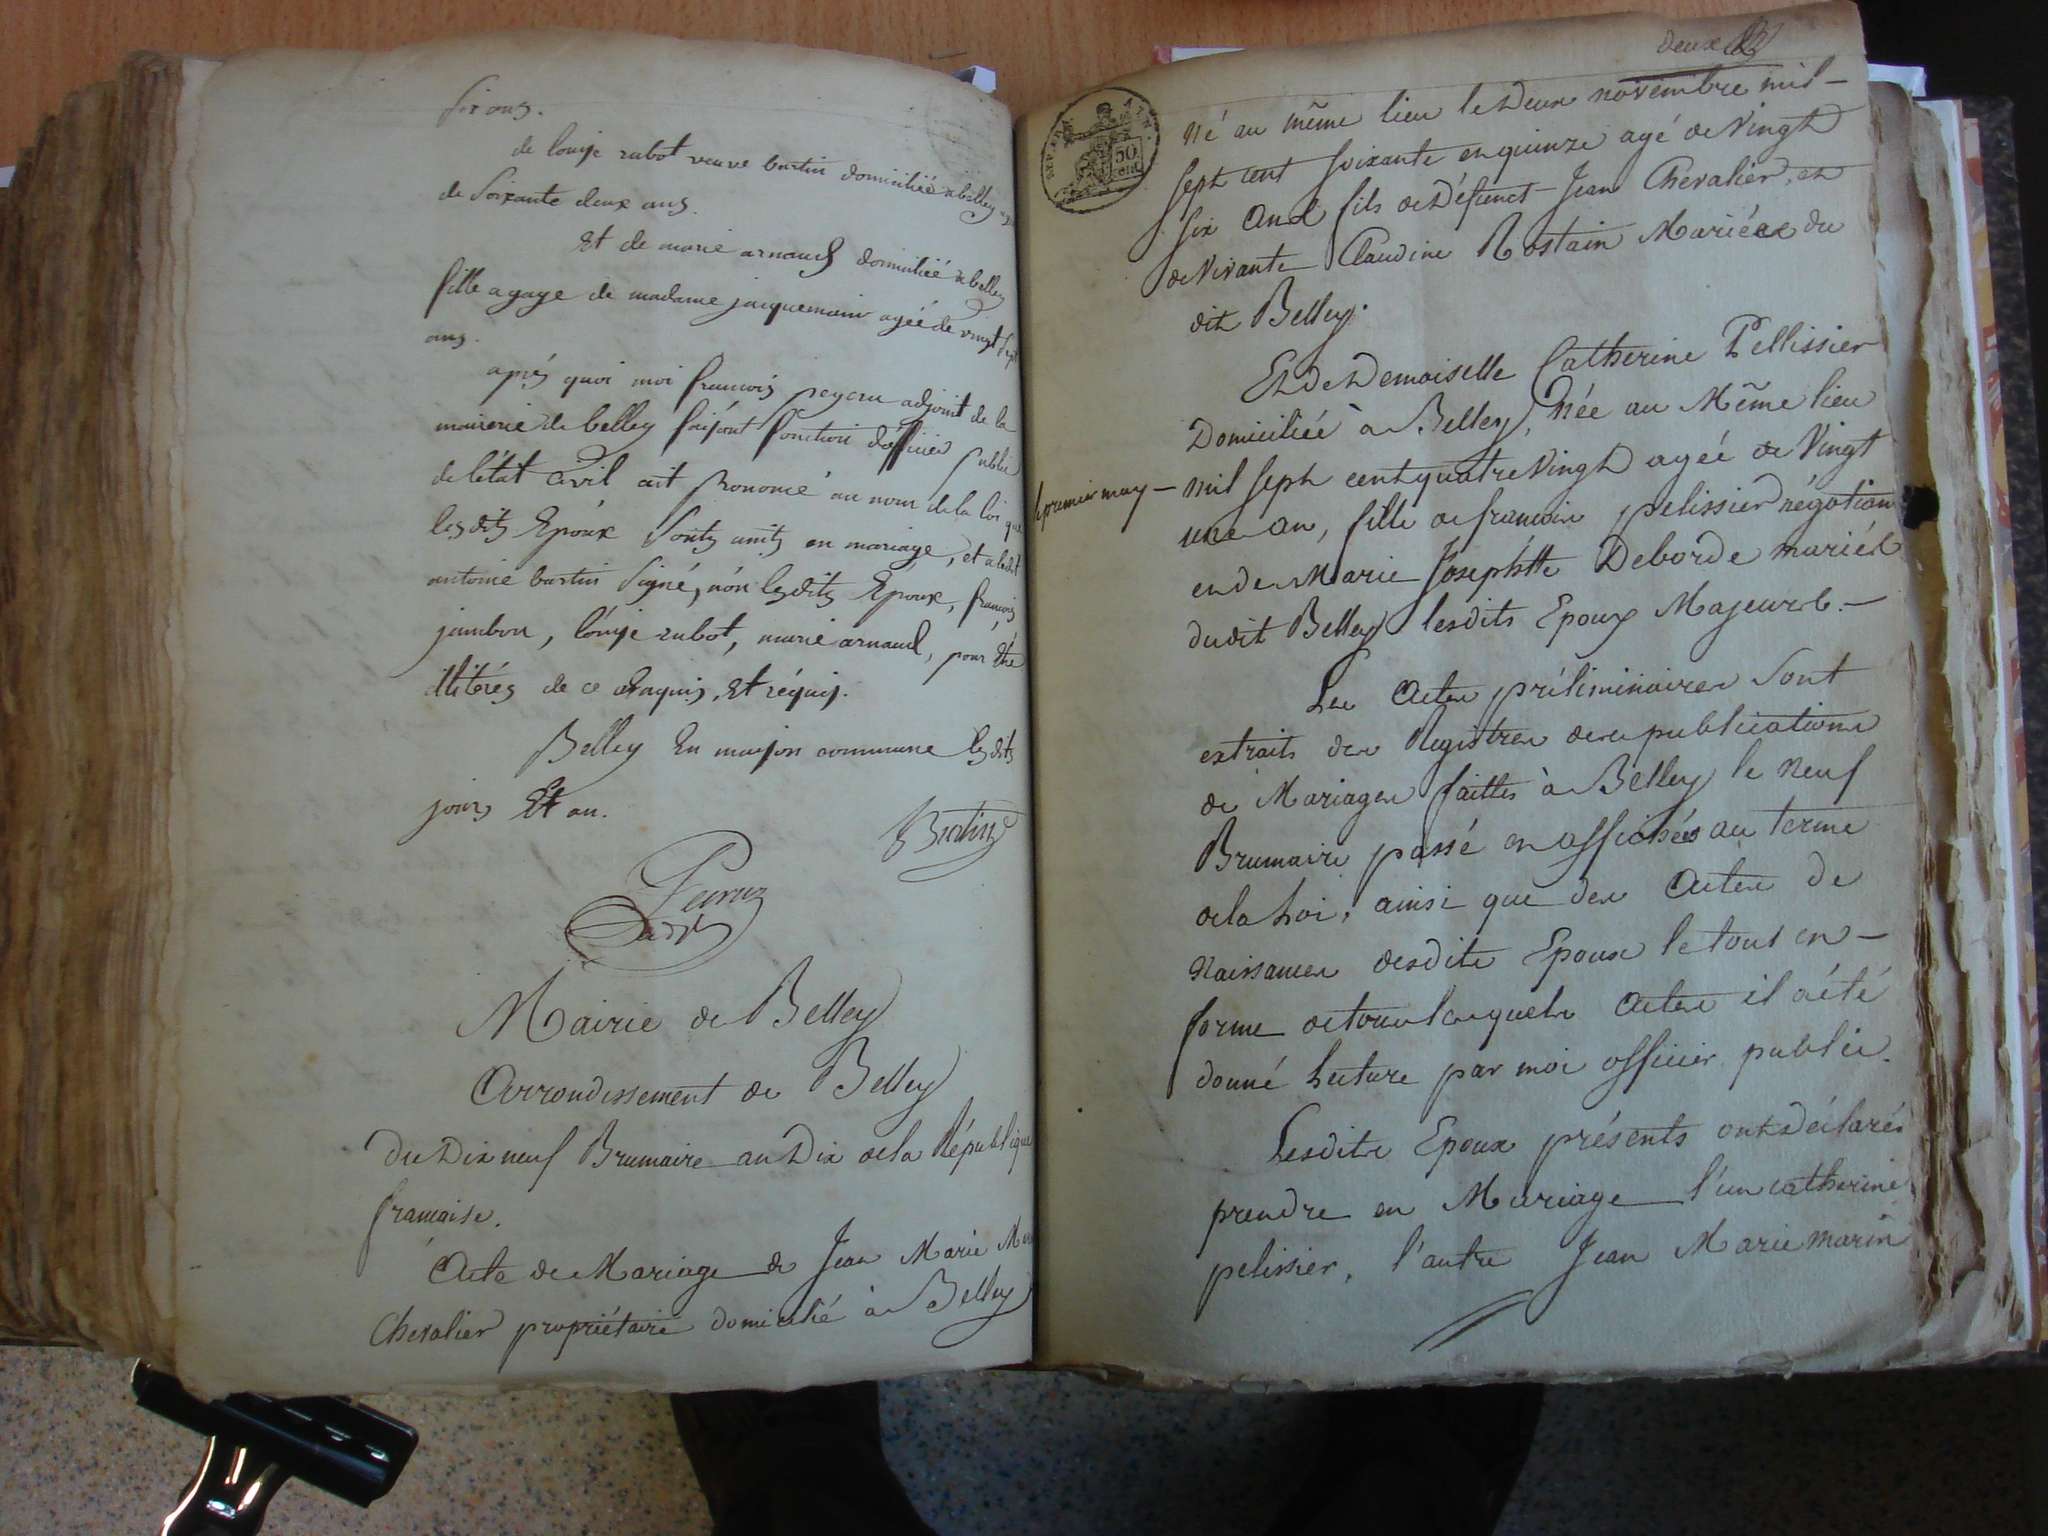 six ans.
de louise rubot veuve bertin domiciliée a belley agée
de Soixante deux ans.
Et de marie arnaud domiciliée a belley
fille a gage de madame jacquemain agée de vingt sept
ans.
après quoi moi francois adjoint de la
mairerie de belley faisant fonction dofficier public
de létat Civil ait prononcé au nom de la loi que
lesdits Epoux Sonts units en mariage, et a ledit
antoine bertin Signé, non lesdits Epoux, francois
jambon, louise rubot, marie arnaud, pour être
illitérés de ce enquis, Et réquis.
Belley En maison commune lesdits
jours Et an.
Mairie de Belley
Arrondissement de Belley
Du Dix neuf Brumaire an Dix de la République
française.
Acte de Mariage de Jean Marie
Chevalier propriétaire domicilié à Belley
deux
50
né au même lieu le Deux novembre mil-
sept cent soixante en quinze agé de Vingt
six ans fils de Défunct Jean Chevalier, et
de Vivante Claudine Rostain Mariées du
dit Belley.
Et de Demoiselle Catherine Pellissier
Domiciliée à Belley, née au Même lieu
le premier may - mil sept cent quatre Vingt agée de Vingt
une an, fille de francois pelissier négotian
en de Marie Josephtte Deborde mariés
dudit Belley lesdits Epoux Majeurs. -
Les Actes préliminaires Sont
extraits des Registres des publications
de Mariages faittes à Belley le neuf
Brumaire passé en affichées au terme
de la Loi, ainsi que des Actes de
Naissances desdits Epoux le tout en -
forme de tous lesquels Actes il a été
donné Lecture par moi officier public.
Lesdits Epoux présents ont Déclarés
prendre en Mariage l'un catherine
pelissier, l'autre Jean Marie marin